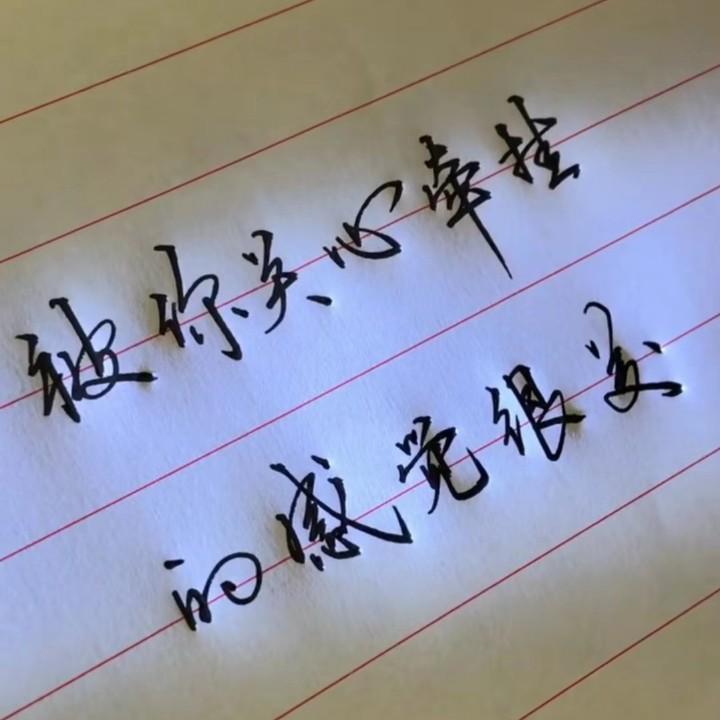 被你关心牵挂
的感觉很